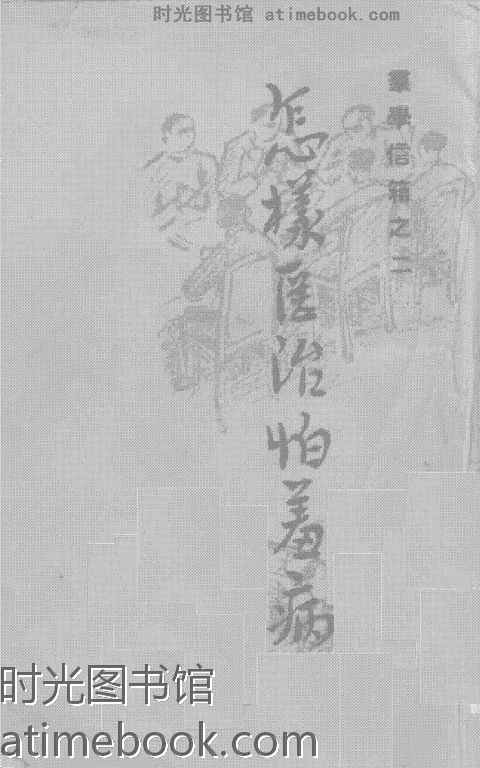 时光图书馆 atimebook.com
羣學信箱之二
怎樣医治怕羞病
时光图书馆
atimebook.com